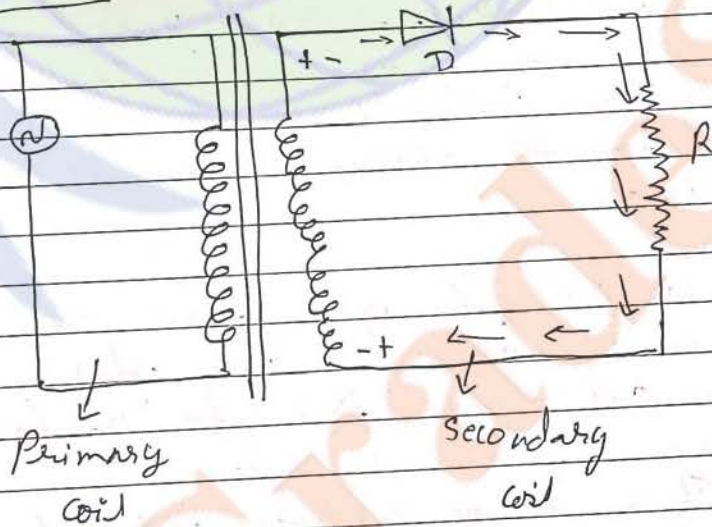 + -
D
R
- +
Primary
coil
Secondary
coil